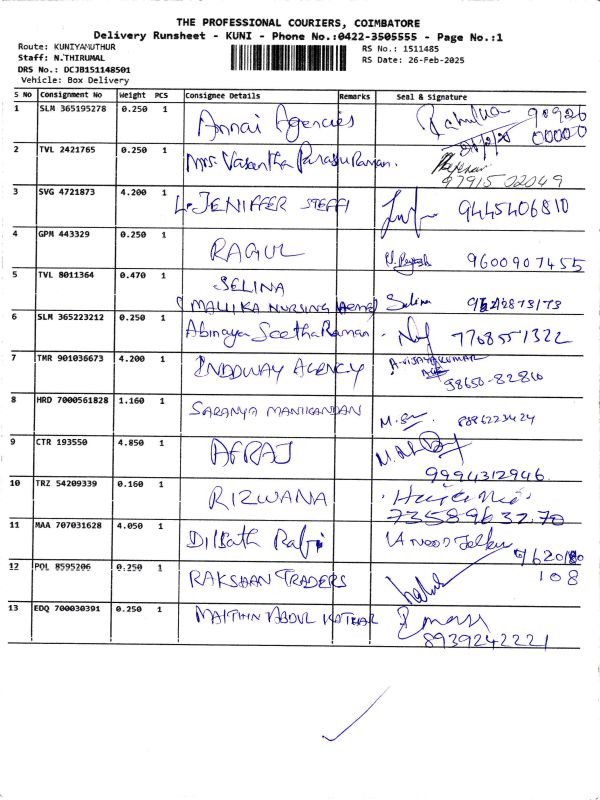 THE PROFESSIONAL COURIERS, COIMBATORE
Delivery Runsheet - KUNI - Phone No.:0422-3505555 - Page No.:1
Route: KUNIYAMUTHUR
RS No.: 1511485
Staff: N.THIRUMAL
RS Date: 26-Feb-2025
DRS No.: DCJB151148501
Vehicle: Box Delivery
S No Consignment No Weight PCS Consignee Details Remarks Seal & Signature
1 SLM 365195278 0.250 1 Annai Agencies 90926
00000
2 TVL 2421765 0.250 1 Mrs. Vasantha Parasu Raman.
9791502049
3 SVG 4721873 4.200 1 L. JENIFFER STEFFI 9445406810
4 GPM 443329 0.250 1 RAGUL 9600907455
5 TVL 8011364 0.470 1 SELINA
MALLIKA NURSING Selina
6 SLM 365223212 0.250 1 Abinaya Seetha Raman 7708551322
7 TMR 901036673 4.200 1 INDDWAY AGENCY A-VIJAYAKUMAR
98650-82810
8 HRD 7000561828 1.160 1 SARANYA MANIKANDAN 8886223424
9 CTR 193550 4.850 1 AFRAJ
9994312946
10 TRZ 54209339 0.160 1 RIZWANA
7358963270
11 MAA 707031628 4.050 1 Dilbath Rafi
12 POL 8595206 0.250 1 RAKSHAN TRADERS 108
13 EDQ 700030391 0.250 1 ABDUL
8939242221